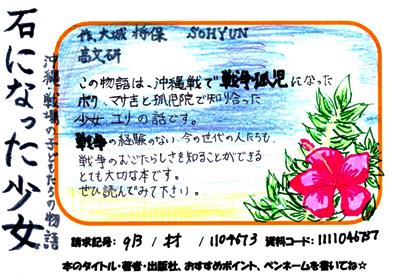 石になった少女
沖縄・戦場の子どもたちの物語
作、大城 将保 SoHYUN
高文研
この物語は、沖縄戦で戦争孤児になった
ボク、マサ吉と孤児院で知り合った
少女 ユリの話です。
戦争の経験のない、今の世代の人たちも、
戦争のおごたらしさを知ることができる
とても大切な本です。
ぜひ読んでみて下さい。
請求記号: 913 / オオ / 1104673 資料コード: 1111046737
本のタイトル・著者・出版社、おすすめポイント、ペンネームを書いてね☆